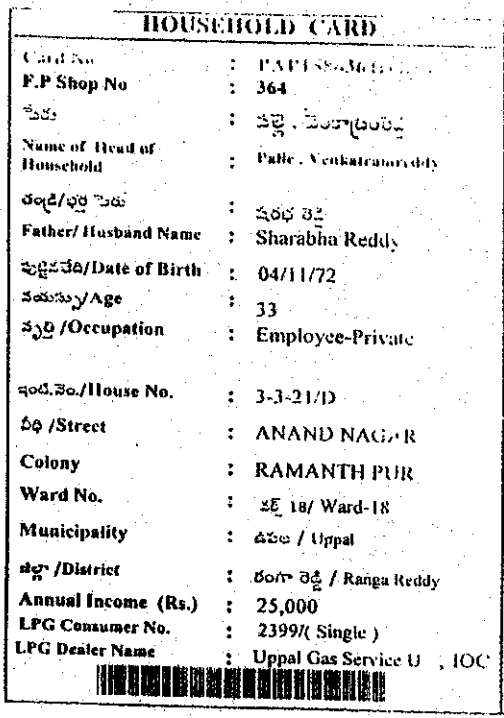 HOUSEHOLD CARD
Card No :
F.P Shop No : 364
పేరు : పల్లె , వెంకట్రాంరెడ్డి
Name of Head of
Household : Palle , Venkatramreddy
తండ్రి/భర్త పేరు : శరభ రెడ్డి
Father/ Husband Name : Sharabha Reddy
పుట్టినతేది/Date of Birth : 04/11/72
వయస్సు/Age : 33
వృత్తి /Occupation : Employee-Private
ఇంటి.నెం./House No. : 3-3-21/D
వీధి /Street : ANAND NAGAR
Colony : RAMANTH PUR
Ward No. : వార్డ్ 18/ Ward-18
Municipality : ఉప్పల / Uppal
జిల్లా /District : రంగా రెడ్డి / Ranga Reddy
Annual Income (Rs.) : 25,000
LPG Consumer No. : 2399/( Single )
LPG Dealer Name : Uppal Gas Service U , IOC